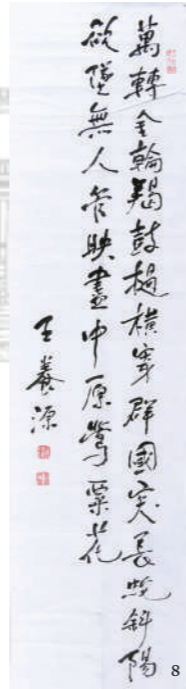 萬轉金輪羯鼓撾橫穿群國突長蛇斜陽
欲墜無人管映盡中原鶯粟花
王養源
8